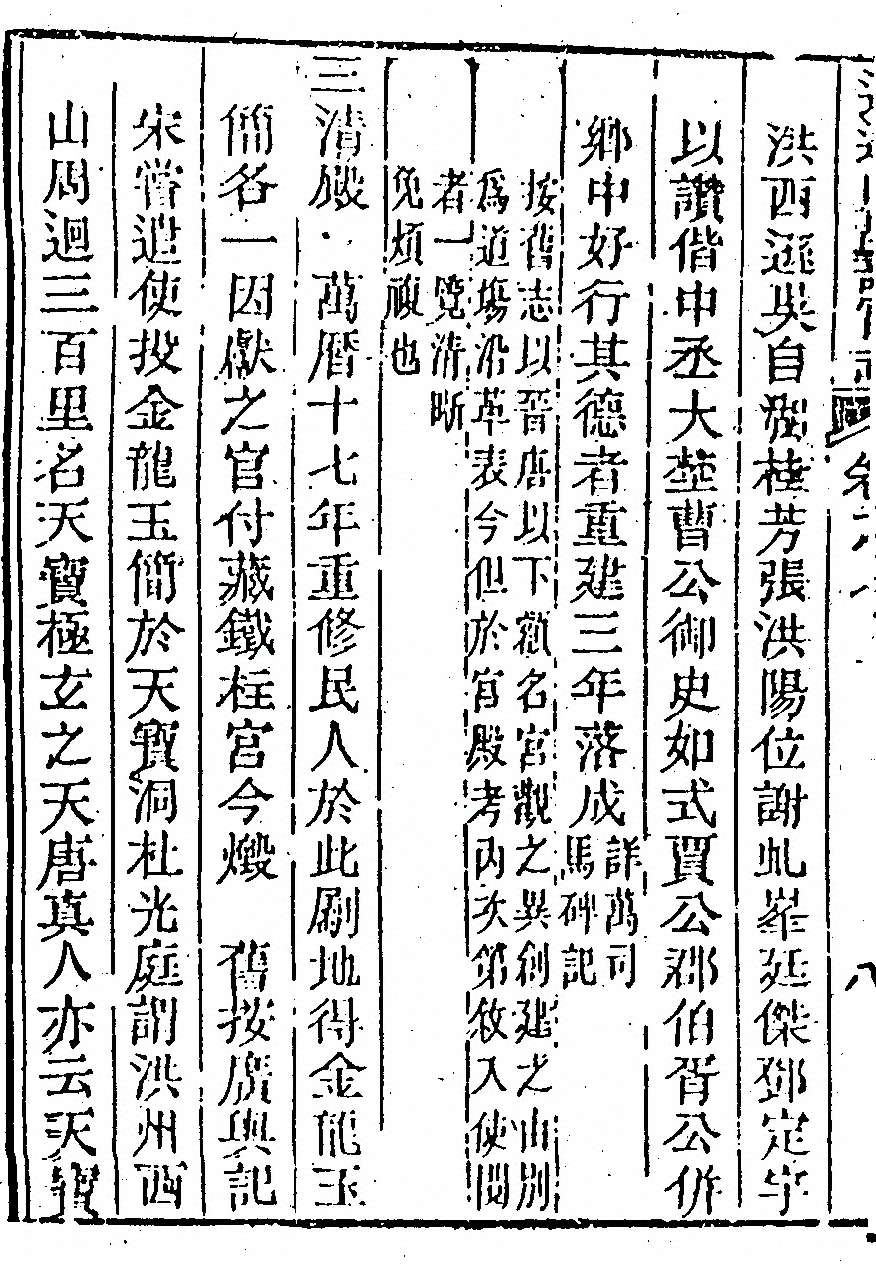 洪西遜吳自湖桂芳張洪陽位謝虬峯廷傑鄧定宇
以讚偕中丞大埜曹公御史如式賈公郡伯胥公併
鄉中好行其德者重建三年落成詳萬司
馬碑記
按舊志以晉唐以下額名宮觀之異創建之由別
爲道塲沿革表今但於宮殿考內次第敘入使閱
者一覽清晰
免煩複也
三清殿萬曆十七年重修民人於此劚地得金龍玉
簡名一因獻之官付藏鐵柱宮今燬 舊按廣輿記
宋嘗遣使投金龍玉簡於天寶洞杜光庭謂洪州西
山周迴三百里名天寶極玄之天唐真人亦云天寶